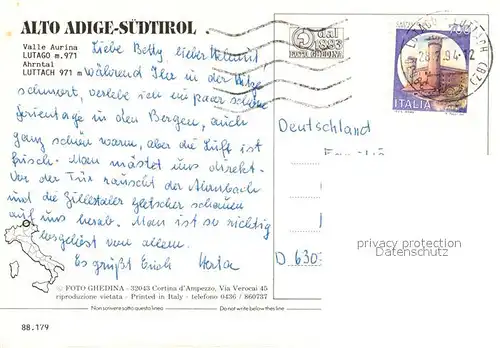 ALTO ADIGE-SÜDTIROL
Valle Aurina
LUTAGO m.971
Ahrntal
LUTTACH 971 m
dal 1893
FOTO GHEDINA
28.7.94-12
ITALIA
Liebe Betty, lieber Helmut
während Ihr in der Hitze
schmort, verlebe ich ein paar schöne
Ferientage in den Bergen, auch
ganz schön warm, aber die Luft ist
frisch. Man mästet uns direkt.
Vor der Tür rauscht der Ahrnbach
und die Zillertaler Gletscher schauen
auf uns herab. Man ist so richtig
losgelöst von allem.
Es grüßt Euch Herta
Deutschland
D. 630
privacy protection
Datenschutz
© FOTO GHEDINA - 32043 Cortina d'Ampezzo, Via Verocai 45
riproduzione vietata - Printed in Italy - telefono 0436 / 860737
Non scrivere sotto questa linea
Do not write below this line
88.179